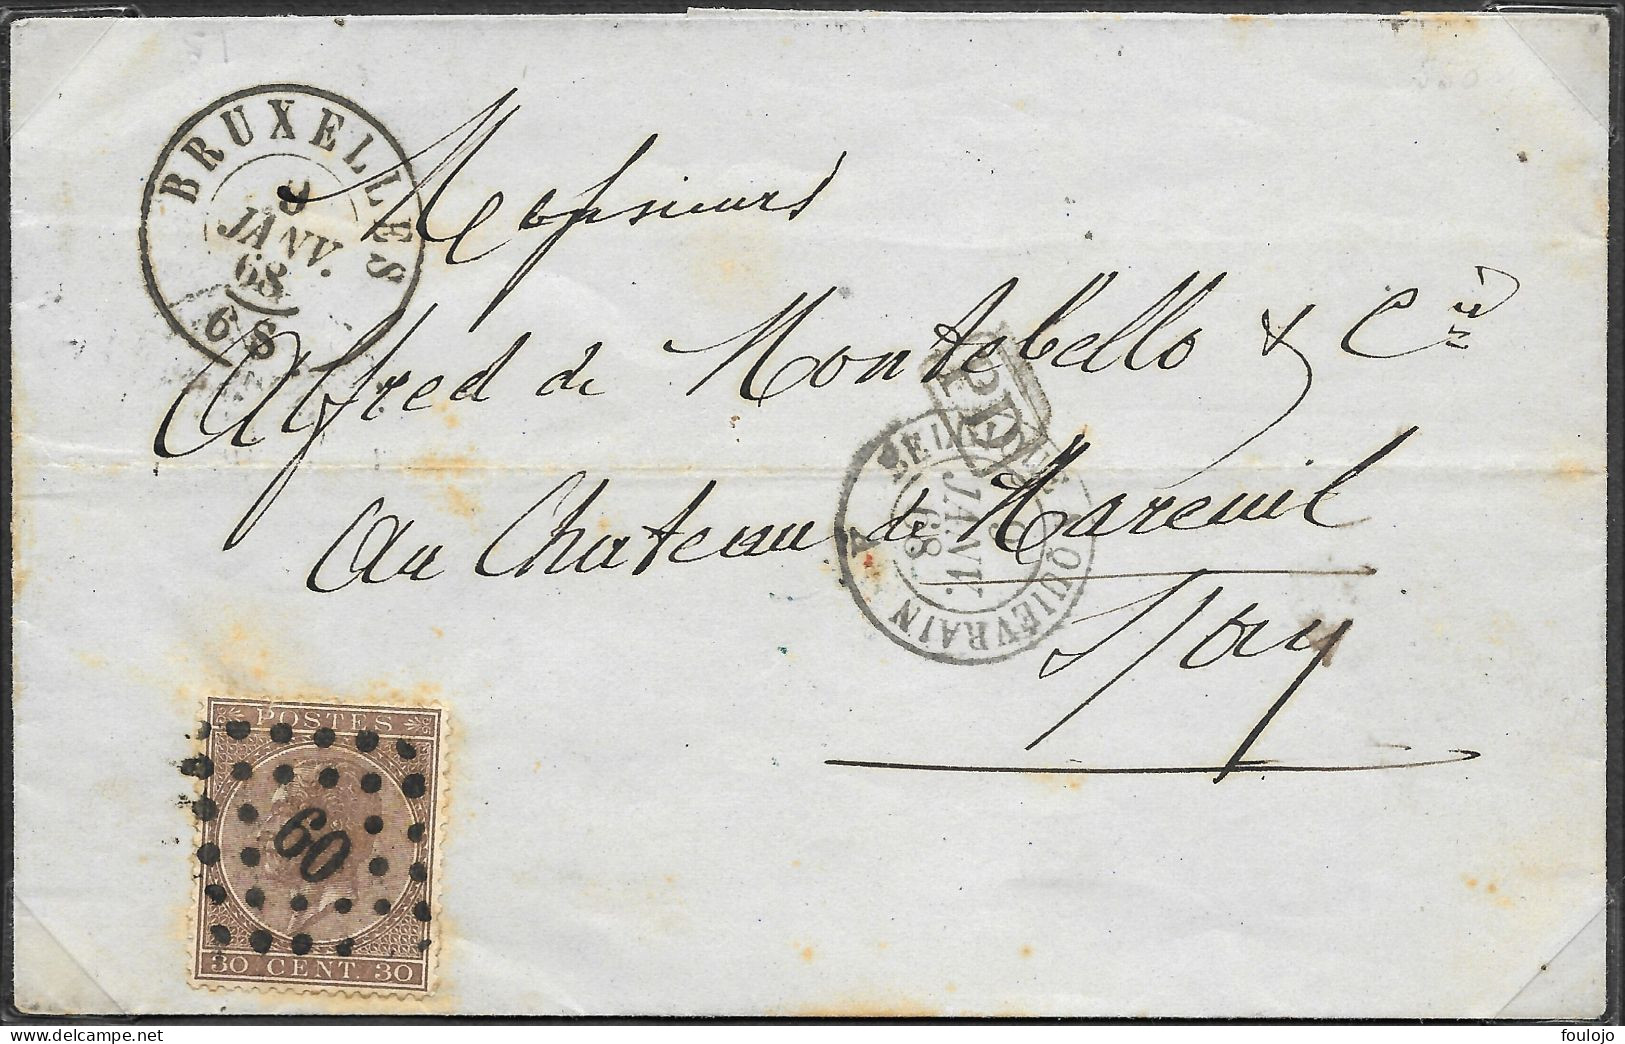 BRUXELLES
9
JANV.
68
6 S
Messieurs
Alfred de Montebello & Cie
PD
au Chateau de Mareuil
BELGIQUE A QUIÉVRAIN
JANV.
68
s/ay
POSTES
60
30 CENT. 30
www.delcampe.net
foulojo